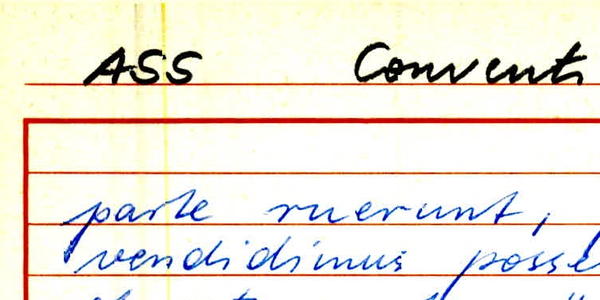 ASS Conventi
parte ruerunt,
vendidimus posse